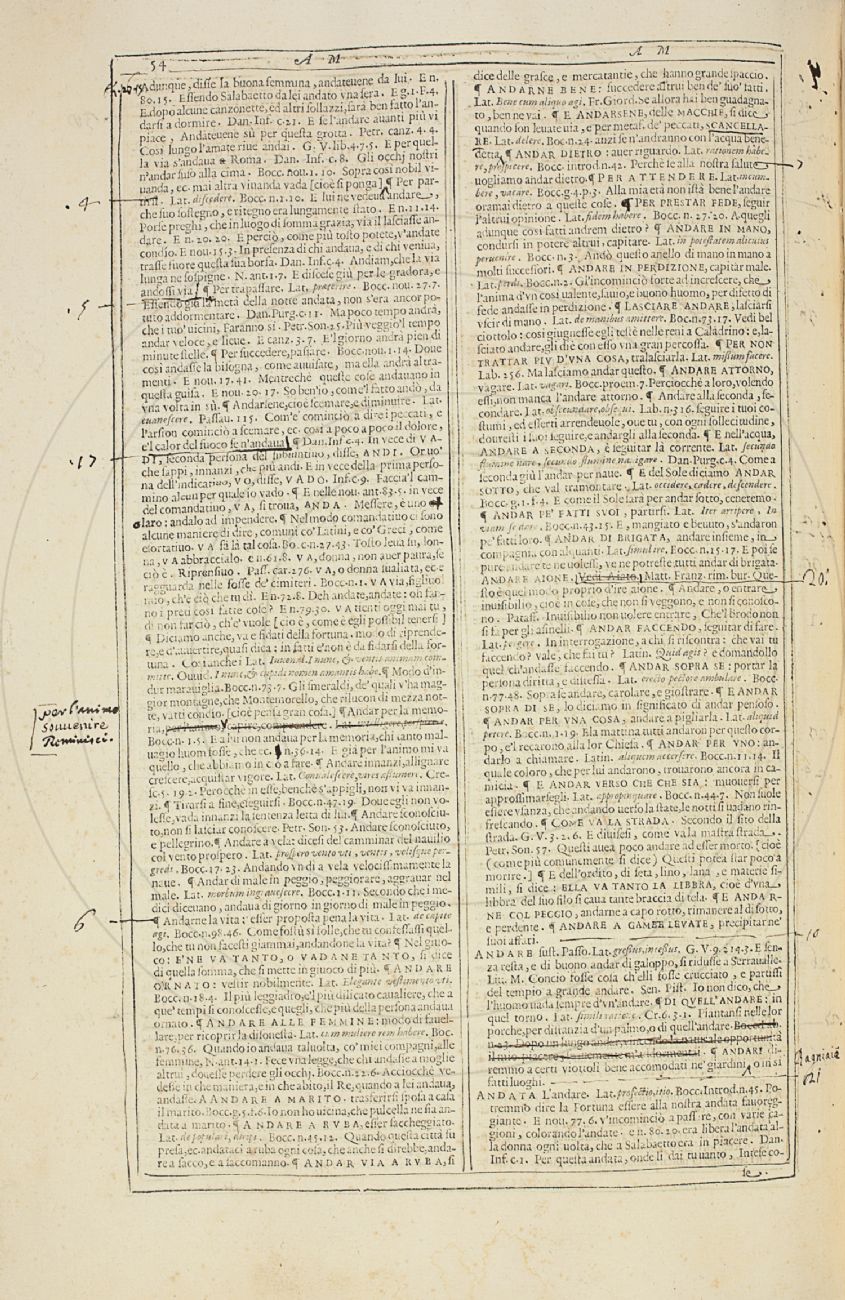 54
A M
Adunque, disse la buona femmina, andatevene da lui. E n.
80.15. Essendo Salabaetto da lei andato vna sera. E g.1.f.4.
E dopo alcune canzonette, ed altri sollazzi, sarà ben fatto l'an-
darsi a dormire. Dan. Inf. c.21. E se l'andare auanti più vi
piace, Andateuene sù per questa grotta. Petr. canz. 4.4.
Così lungo l'amate riue andai. G. V. lib.4.7.5. E per quel-
la via s'andaua a Roma. Dan. Inf. c.8. Gli occhj nostri
n'andar suso alla cima. Bocc. nou.1.10. Sopra così nobil vi-
uanda, ec. mai altra viuanda vada [cioè si ponga] ¶ Per par-
Lat. discedere. Bocc. n.1.10. E lui ne vedeua andare,
che suo sostegno, e ritegno era lungamente stato. E n.11.14.
Porse preghi, che in luogo di somma grazia, via il lasciasse an-
dare. E n. 20. 20. E perciò, come più tosto potete, v'andate
con dio. E nou.15.3. In presenza di chi andaua, e di chi veniua,
trasse fuore questa sua borsa. Dan. Inf. c.4. Andiam, che la via
lunga ne sospigne. N. ant.1.7. E discese giù per le gradora, e
andossi via] ¶ Per trapassare. Lat. praeterire. Bocc. nou. 27.7.
Essendo già la metà della notte andata, non s'era ancor po-
tuto addormentare. Dan. Purg. c.11. Ma poco tempo andrà,
che i tuo' uicini, Faranno si. Petr. Son.25. Più veggio 'l tempo
andar veloce, e lieue. E canz.3.7. E 'l giorno andrà pien di
minute stelle. ¶ Per succedere, passare. Bocc. nou.1.14. Doue
così andasse la bisogna, come auuisate, ma ella andrà altra-
menti. E nou. 17. 41. Mentrechè queste cose andauano in
questa guisa. E nou. 20. 17. So ben' io, come 'l fatto andò, da
vna volta in sù. ¶ Andarsene, cioè scemare, e diminuire. Lat.
euanescere. Passau. 115. Com'e' cominciò a dire i peccati, e
l'arsion cominciò a scemare, ec. così a poco a poco il dolore,
e 'l calor del fuoco se n'andaua] ¶ Dan. Inf. c.4. In vece di V A-
DI, seconda persona del subiuntiuo, disse, ANDI. Or uo'
che sappi, innanzi, che più andi. E in vece della prima perso-
na dell'indicatiuo, VO, disse, VADO. Inf. c.9. Faccia 'l cam-
mino alcun per quale io vado. ¶ E nelle nou. ant.83.5. in vece
del comandatiuo, VA, si troua, ANDA. Messere, è uno
olaro: andalo ad impendere. ¶ Nel modo comandatiuo ci sono
alcune maniere di dire, comuni co' Latini, e co' Greci, come
esortatiuo. VA fà la tal cosa. Bocc. n.27.43. Tosto leua su, don-
na, VA abbraccialo. e n.61.8. VA, donna, non auer paura, se
ciò è. Riprensiuo. Pass. car.276. VA, o donna sualiata, ec. e
ragguarda nelle fosse de' cimiteri. Bocc. n.1. VA via, figliuol
mio, ch'è ciò che tu dì. E n.72.8. Deh andate, andate: oh fan-
no i preti così fatte cose? E n.79.30. VA tienti oggi mai tu,
di non far ciò, ch'e' vuole [cio è, come è egli possibil tenersi]
¶ Diciamo anche, va e fidati della fortuna. modo di riprende-
re, e d'auuertire, quasi dica: in fatti e' non è da fidarsi della for-
tuna. Così anche i Lat. Iuuenal. I nunc, & ventis animam com-
mitte. Ouuid. I nunc, & cupidi nomen amantis habe. ¶ Modo d'in-
dur marauiglia. Bocc. n.73.7. Gli smeraldi, de' quali v'ha mag-
gior montagne, che Montemorello, che rilucon di mezza not-
te, vatti con dio. [cioè pensa gran cosa.] ¶ Andar per la memo-
ria,
Bocc. n.1.5. E a lui non andaua per la memoria, chi tanto mal-
uagio huom fosse, che ec. n.36.14. E già per l'animo mi va
quello, che abbiamo in ciò a fare. ¶ Andare innanzi, allignare
crescere, acquistar vigore. Lat. Conualescere, vires assumere. Cre-
sc.5. 19.2. Perocchè in esse, benchè s'appigli, non vi va innan-
zi. ¶ Tirarsi a fine, eseguirsi. Bocc. n.47.19. Doue egli non vo-
lesse, vada innanzi la sentenza letta di lui. ¶ Andare sconosciu-
to, non si lasciar conoscere. Petr. Son.53. Andare sconosciuto,
e pellegrino. ¶ Andare a vela: dicesi del camminar del nauilio
col vento prospero. Lat. prospero vento uti, ventis, velisque per-
gredi. Bocc. 17. 23. Andando vn dì a vela velocissimamente la
naue. ¶ Andar di male in peggio, peggiorare, aggrauar nel
male. Lat. morbum ingrauescere. Bocc. n.1.11. Secondo che i me-
dici diceuano, andaua di giorno in giorno di male in peggio.
¶ Andarne la vita: esser proposta pena la vita. Lat. de capite
agi. Bocc. n.98.46. Come fostù sì folle, che tu confessassi quel-
lo, che tu non facesti giammai, andandone la vita? ¶ Nel giuo-
co: E' NE VA TANTO, O VADANE TANTO, si dice
di quella somma, che si mette in giuoco di più. ¶ ANDARE
ORNATO: vestir nobilmente. Lat. Elegante vestimento vti.
Bocc. n.18.4. Il più leggiadro, e 'l più dilicato caualiere, che a
que' tempi si conoscesse, e quegli, che più della persona andaua
ornato. ¶ ANDARE ALLE FEMMINE: modo di fauel-
lare, per ricoprir la disonesta. Lat. cum muliere rem habere. Boc.
n.76.36. Quando io andaua taluolta, co' miei compagni, alle
femmine, N. ant.14.1. Fece vna legge, che chi andasse a moglie
altrui, douesse perdere gli occhj. Bocc. n.22.6. Acciocchè ve-
desse in che maniera, e in che abito, il Re, quando a lei andaua,
andasse. A ANDARE A MARITO. trasferirsi sposa a casa
il marito. Bocc. g.5.f.6. Io non ho uicina, che pulcella ne sia an-
data a marito. ¶ ANDARE A RVBA, esser saccheggiato.
Lat. depopulari, diripi. Bocc. n.45.12. Quando questa città fu
presa, ec. andataci a ruba ogni cosa, che anche si direbbe, anda-
re a sacco, e a saccomanno. ¶ ANDAR VIA A RVBA, si
A M
dice delle grasce, e mercatantie, che hanno grande spaccio.
¶ ANDARNE BENE: succedere altrui ben de' suo' fatti.
Lat. Bene cum aliquo agi. Fr. Giord. Se allora hai ben guadagna-
to, ben ne vai. ¶ E ANDARSENE, delle MACCHIE, si dice
quando son leuate uia, e per metaf. de' peccati, SCANCELLA-
RE. Lat. delere. Boc. n.24. anzi se n'andranno con l'acqua bene-
detta, ¶ ANDAR DIETRO: auer riguardo. Lat. rationem habe-
re, prospicere. Bocc. introd. n.42. Perchè se alla nostra salute
uogliamo andar dietro. ¶ PER ATTENDERE. Lat. incum-
bere, vacare. Bocc. g.4.p.3. Alla mia età non istà bene l'andare
oramai dietro a queste cose. ¶ PER PRESTAR FEDE, seguir
l'altrui opinione. Lat. fidem habere. Bocc. n. 27. 20. A quegli
adunque così fatti andrem dietro? ¶ ANDARE IN MANO,
condursi in potere altrui, capitare. Lat. in potestatem alicuius
peruenire. Bocc. n.3. Andò questo anello di mano in mano a
molti successori. ¶ ANDARE IN PERDIZIONE, capitar male.
Lat. perdi. Bocc. n.2. Gl'incominciò forte ad increscere, che
l'anima d'vn così ualente, sauio, e buono huomo, per difetto di
fede andasse in perdizione. ¶ LASCIARE ANDARE, lasciarsi
vscir di mano. Lat. de manibus amittere. Bocc. n.73.17. Vedi bel
ciottolo: così giugnesse egli testè nelle reni a Calandrino: e, la-
sciato andare, gli diè con esso vna gran percossa. ¶ PER NON
TRATTAR PIV D'VNA COSA, tralasciarla. Lat. missum facere.
Lab. 256. Ma lasciamo andar questo. ¶ ANDARE ATTORNO,
vagare. Lat. vagari. Bocc. proem.7. Perciocchè a loro, volendo
essi, non manca l'andare attorno. ¶ Andare alla seconda, se-
condare. Lat. obsecundare, obsequi. Lab. n.316. seguire i tuoi co-
stumi, ed esserti arrendeuole, oue tu, con ogni sollecitudine,
douresti i suoi seguire, e andargli alla seconda. ¶ E nell'acqua,
ANDARE A SECONDA, è seguitar la corrente. Lat. secundo
flumine nare, secundo flumine nauigare. Dan. Purg. c.4. Come a
seconda giù l'andar per naue. ¶ E del Sole diciamo ANDAR
SOTTO, che val tramontare. Lat. occidere, cadere, descendere.
Bocc. g.1.f.4. E come il Sole sarà per andar sotto, ceneremo.
¶ ANDAR PE' FATTI SVOI, partirsi. Lat. Iter arripere, In
viam se dare. Bocc. n.43.15. E, mangiato e beuuto, s'andaron
pe' fatti loro. ¶ ANDAR DI BRIGATA, andare insieme, in
compagnia con alquanti. Lat. simul ire. Bocc. n.15.17. E poi se
pure andare te ne uolessi, ve ne potreste, tutti andar di brigata.
ANDARE AIONE. [Vedi Aiato.] Matt. Franz. rim. bur. Que-
sto è quel modo proprio d'ire aione. ¶ Andare, o entrare
inuisibilio, cioè in cose, che non si veggono, e non si conosco-
no. Pataff. Inuisibilio non uolere entrare, Che 'l brodo non
si fa per gli asinelli. ¶ ANDAR FACCENDO, seguitar di fare.
Lat. pergere. In interrogazione, a chi si riscontra: che vai tu
faccendo? vale, che fai tu? Latin. Quid agis? e domandollo
quel ch'andasse faccendo. ¶ ANDAR SOPRA SE: portar la
persona diritta, e distesa. Lat. erecto pectore ambulare. Bocc.
n.77.48. Sopra se andare, carolare, e giostrare. ¶ E ANDAR
SOPRA DI SE, lo diciamo in significato di andar pensoso.
¶ ANDAR PER VNA COSA, andare a pigliarla. Lat. aliquid
petere. Bocc. n.1.19. E la mattina tutti andaron per questo cor-
po, e 'l recarono, alla lor Chiesa. ¶ ANDAR PER VNO: an-
darlo a chiamare. Latin. aliquem accersere. Bocc. n.11.14. Il
quale coloro, che per lui andarono, trouarono ancora in ca-
micia. ¶ E ANDAR VERSO CHE CHE SIA: muouersi per
approssimarsegli. Lat. appropinquare. Bocc. n.44.7. Non suole
essere vsanza, che andando uerso la state, le notti si uadano rin-
frescando. ¶ COME VA LA STRADA. Secondo il sito della
strada. G. V. 3.2.6. E diuisesi, come vala mastra strada.
Petr. Son. 57. Questi auea poco andare ad esser morto. [cioè
(come più comunemente si dice) Questi potea star poco a
morire.] ¶ E dell'ordito, di seta, lino, lana, e materie si-
mili, si dice: ELLA VA TANTO LA LIBBRA, cioè d'vna
libbra del suo filo si caua tante braccia di tela. ¶ E ANDAR-
NE COL PEGGIO, andarne a capo rotto, rimanere al disotto,
e perdente. ¶ ANDARE A GAMBE LEVATE, precipitar ne'
suoi affari.
ANDARE sust. Passo. Lat. gressus, incessus. G. V. 9. 214.3. E sen-
za resta, e di buono andar di galoppo, si ridusse a Serraualle.
Liu. M. Concio fosse cosa ch'elli fosse crucciato, e partissi
del tempio a grande andare. Sen. Pist. Io non dico, che
l'huomo uada sempre d'vn'andare. ¶ DI QVELL'ANDARE: in
quel torno. Lat. simili ratione. Cr.6.3.1. Piantansi nelle lor
porche, per distanzia d'un palmo, o di quell'andare.
¶ ANDARI di-
remmo a certi viottoli bene accomodati ne' giardini, o in sì
fatti luoghi.
ANDATA L'andare. Lat. profectio, itio. Bocc. Introd. n.45. Po-
tremmo dire la Fortuna essere alla nostra andata fauoreg-
giante. E nou. 77.6. V'incominciò a passare, con varie ca-
gioni, colorando l'andate. e n. 80.20. era libera l'andata al-
la donna ogni uolta, che a Salabetto era in piacere. Dan.
Inf. c.2. Per questa andata, onde li dai tu uanto, Intese co-
se
4
5
17
per l'animo
souuenire
Reminisci.
6
7
20
10
21